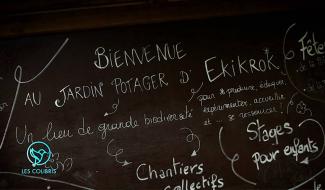 BIENVENUE
AU JARDIN POTAGER D' EKIKROK
Un lieu de grande biodiversité
pour produire, éduquer
expérimenter, accueillir
et se ressourcer !
Fête
Stages
pour enfants
Chantiers
collectifs
LES COLIBRIS